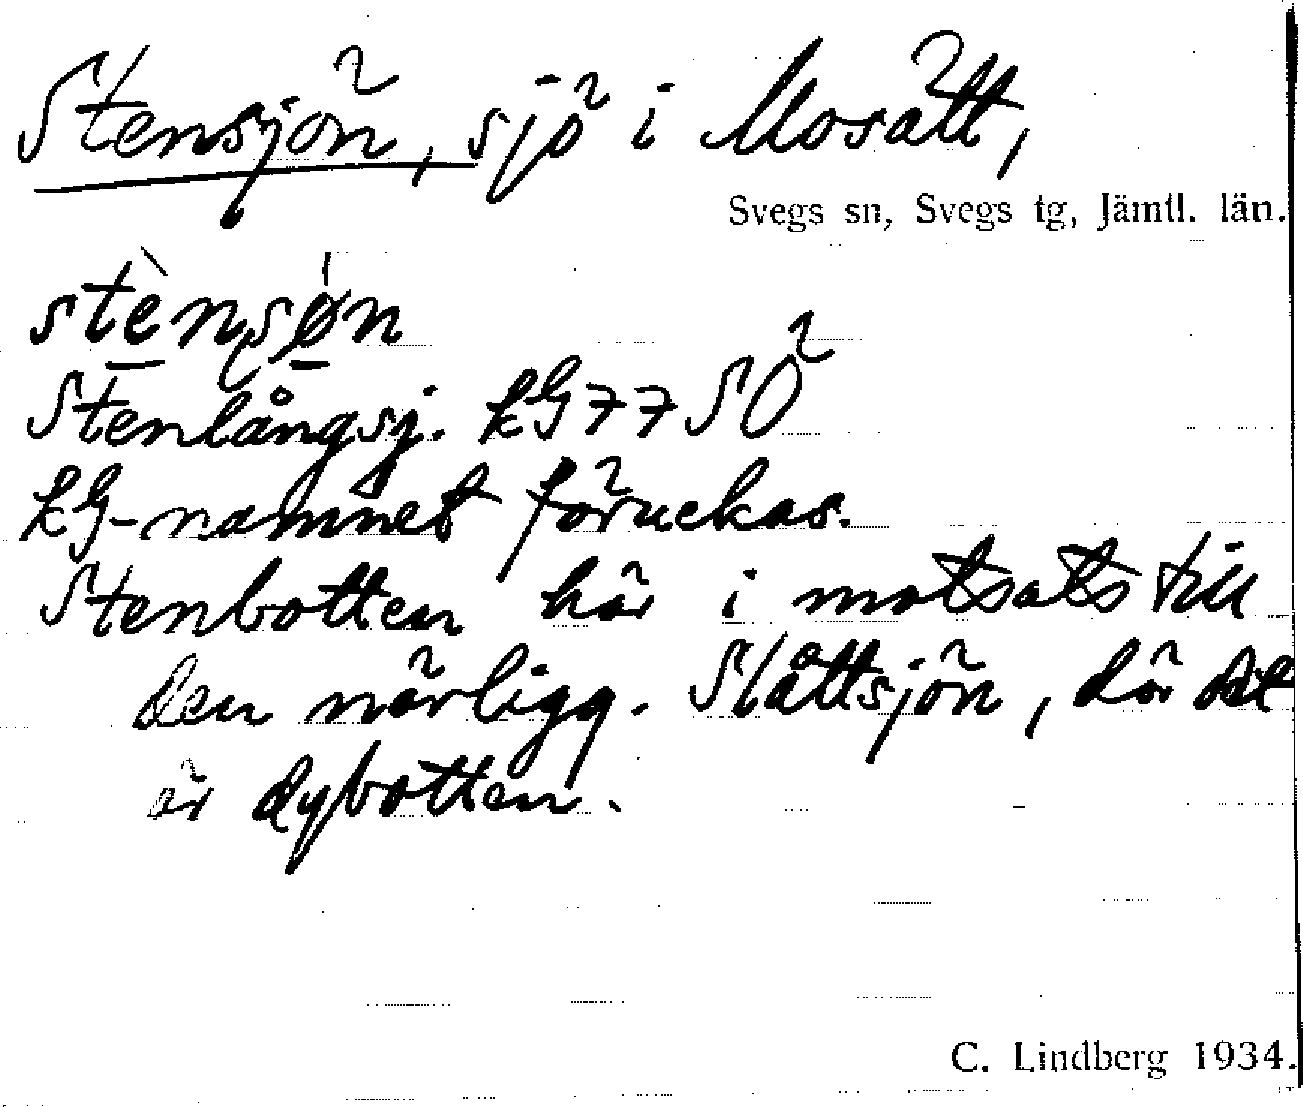 Stensjön, sjö i Mosätt,
Svegs sn, Svegs tg, Jämtl. län.
stènsøn
Stenlångsj. kG 77 SÖ
kG-namnet föruckas.
Stenbotten här i motsats till
den närligg. Slåttsjön, där det
är dybotten.
C. Lindberg 1934.